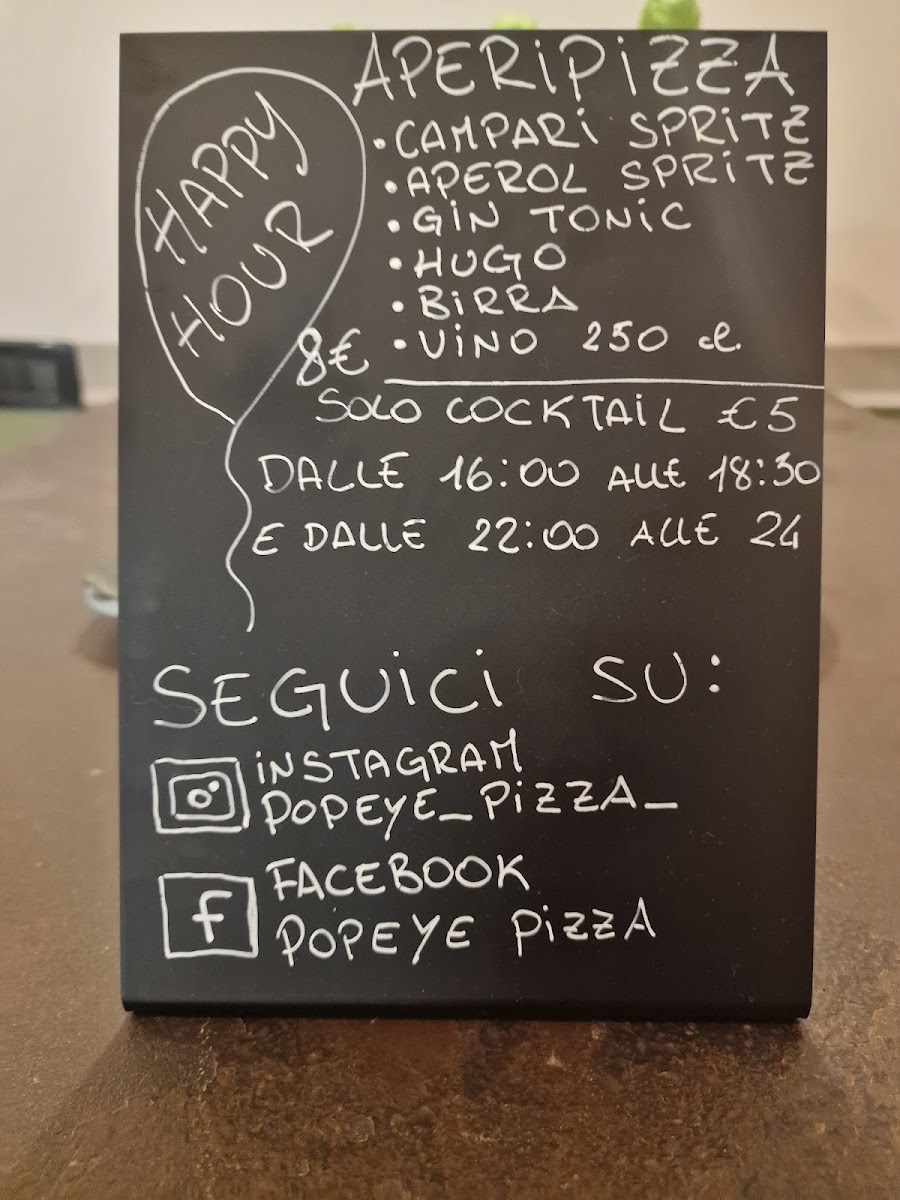 APERiPiZZA
HAPPY
HOUR
• CAMPARi SPRiTZ
• APEROL SPRiTZ
• GiN TONiC
• HUGO
• BiRRA
8€ • ViNO 250 cl.
SOLO COCKTAiL €5
DALLE 16:00 ALLE 18:30
E DALLE 22:00 ALLE 24
SEGUiCi SU:
iNSTAGRAM
POPEYE_PiZZA_
f FACEBOOK
POPEYE PiZZA